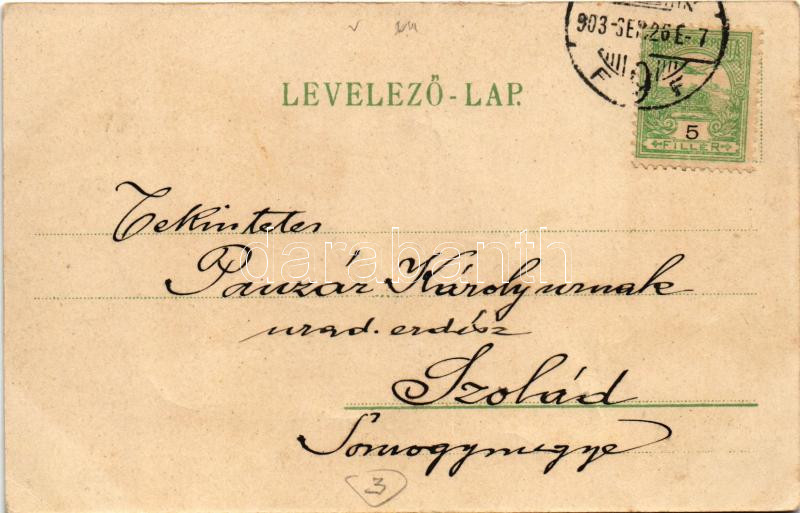 903 SEP. 26 E-7
F 9 F
LEVELEZŐ-LAP.
5
FILLÉR
Tekintetes
Pauzár Károly urnak
urad. erdész
Szolád
Somogymegye
3
darabanth